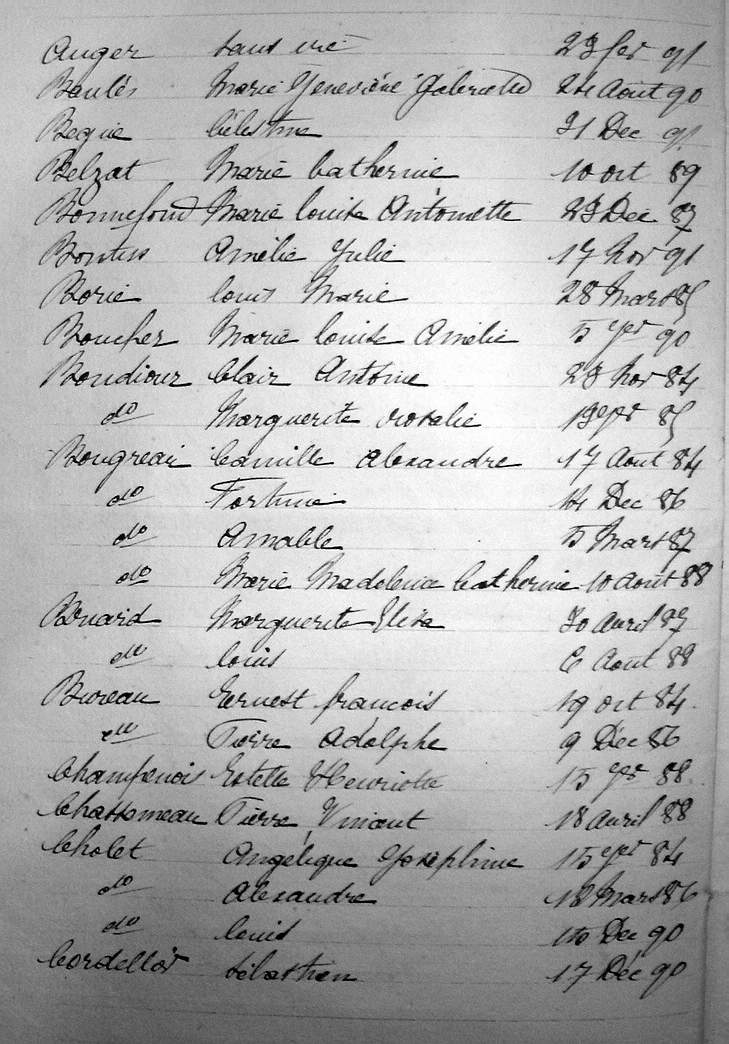 Auger sans vie 23 fev 91
Baulés Marie Geneviève Gabrielle 24 Août 90
Begue Célestine 31 Dec 91
Belzat Marie Catherine 10 oct 89
Bonnefond Marie louise Antoinette 23 Déc 87
Bontus Amélie Julie 17 Nov 91
Borie louis Marie 28 Mars 85
Boucher Marie louise Amélie 5 90
Boudiour Clair Antoine 23 Nov 84
do Marguerite rosalie 19 85
Bougreau Camille Alexandre 17 Aout 84
do Fortuné 14 Dec 86
do Amable 5 Mars 87
do Marie Madeleine Catherine 10 Aout 88
Bruard Marguerite Elisa 30 Avril 87
do louis 6 Août 88
Bureau Ernest françois 19 oct 84
do Pierre Adolphe 9 Déc 86
Champenois Estelle Henriette 15 88
Chassoneau Pierre Vincent 18 avril 88
Cholet Angélique Joséphine 15 84
do Alexandre 18 Mars 86
do louis 10 Dec 90
Cordellör sébastien 17 Déc 90